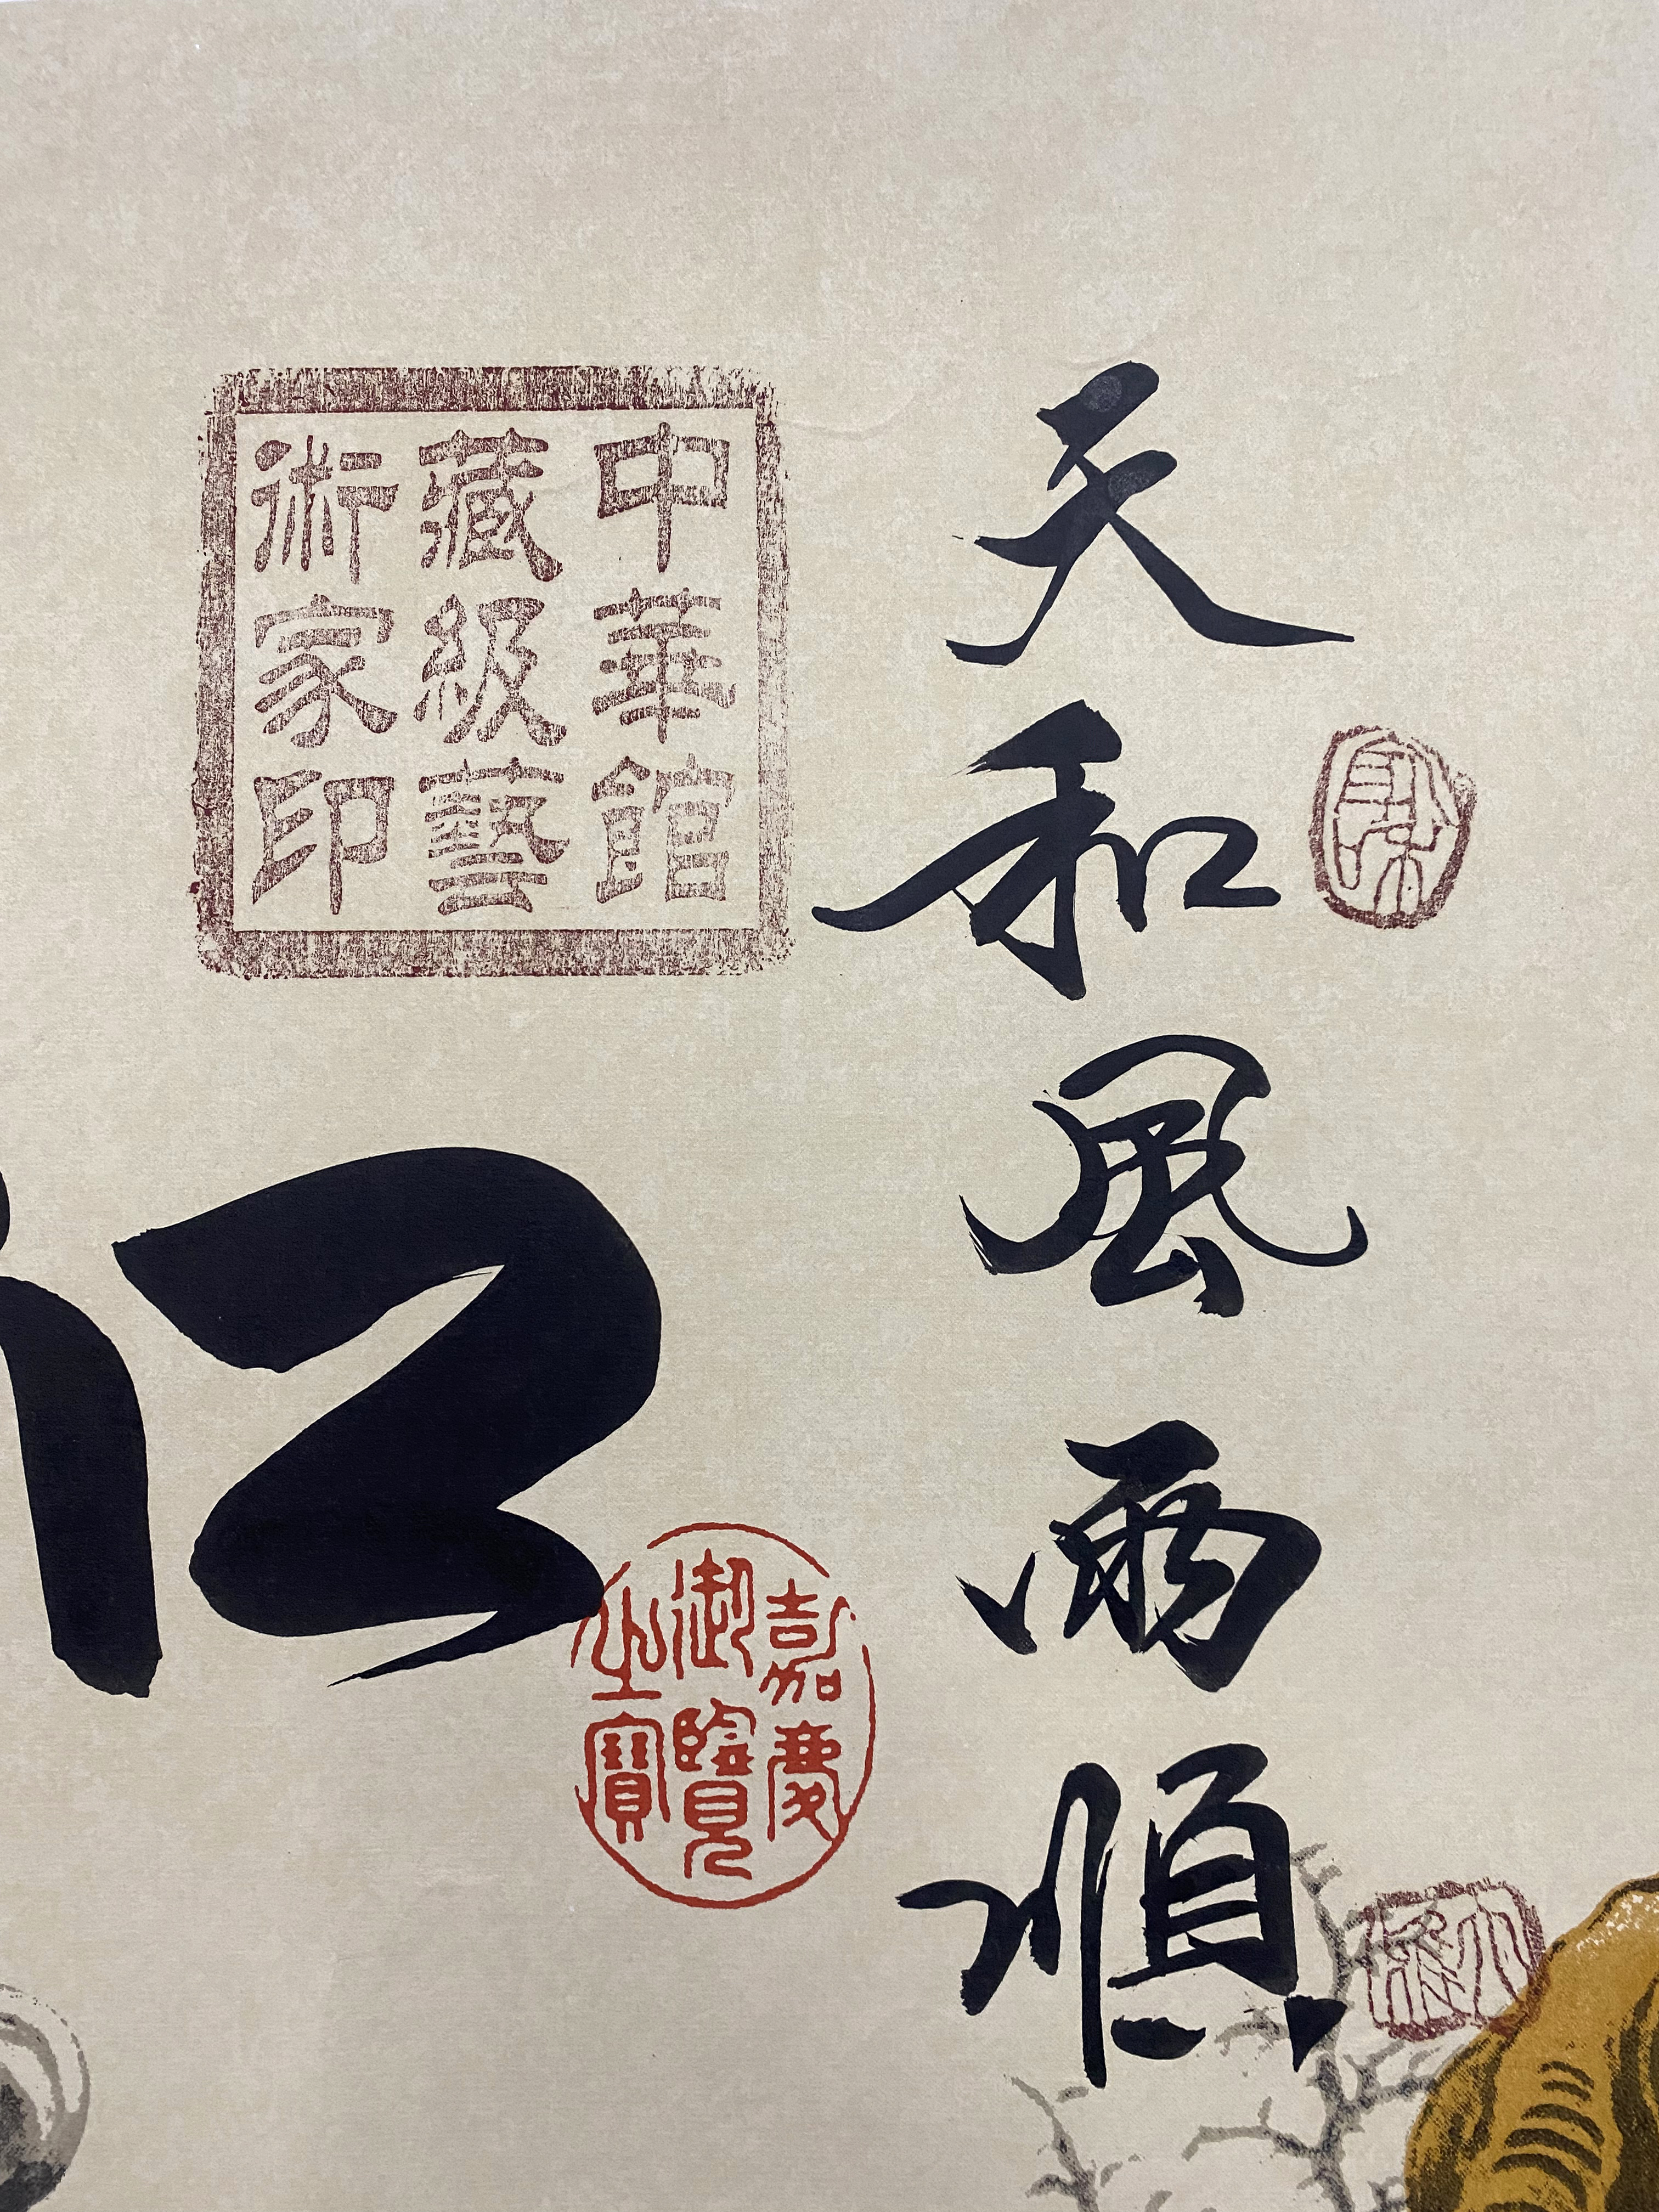 天和風雨順
中華館
藏級藝
術家印
嘉慶
御覽
之寶